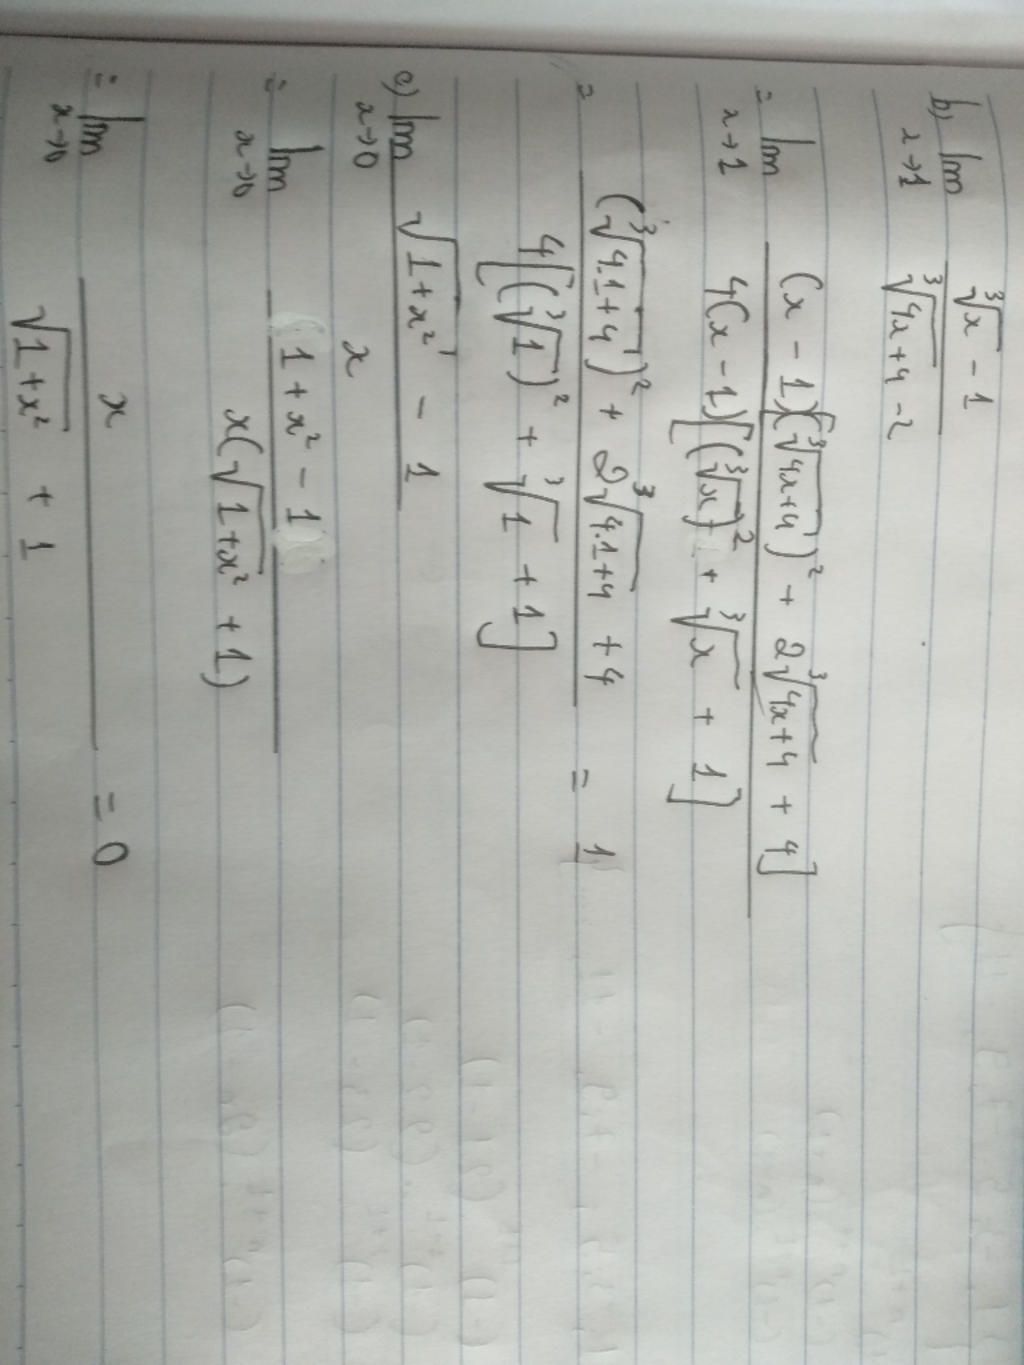 b) lim x→1 (∛x - 1)/(∛4x+4 - 2)
= lim x→1 (x - 1)[(∛4x+4)² + 2∛4x+4 + 4] / 4(x - 1)[(∛x)² + ∛x + 1]
= (∛4.1+4)² + 2∛4.1+4 + 4 / 4[(∛1)² + ∛1 + 1] = 1
c) lim x→0 (√1+x² - 1)/x
= lim x→0 (1 + x² - 1)/x(√1+x² + 1)
= lim x→0 x/(√1+x² + 1) = 0